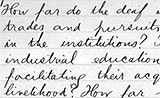 How far do the deaf
trades and pursuits
in the institutions?
industrial education
facilitating their acq
livelihood? How far